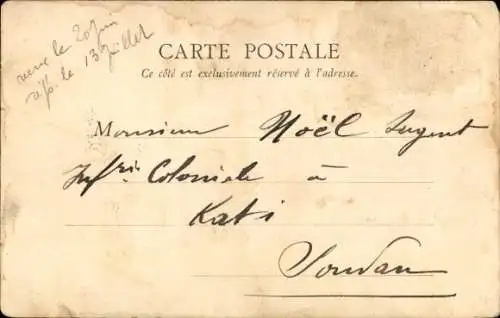 reçue le 20 juin
rép. le 13 juillet
CARTE POSTALE
Ce côté est exclusivement réservé à l'adresse.
Monsieur Noël Sergent
Inf.rie Coloniale à
Kati
Soudan